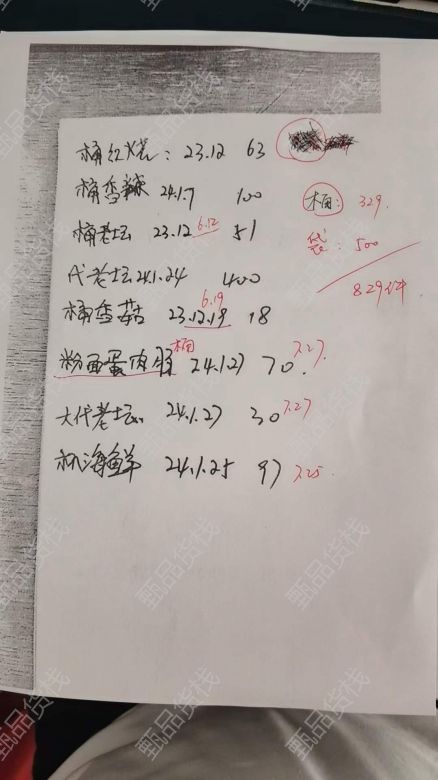 桶红烧：23.12 63
桶香辣 24.1.7 100
桶：329.
桶老坛 23.12 6.12 51
袋：500
代老坛 24.1.24 400
829件
桶香菇 23.12.19 6.19 18
粉面蛋肉 桶 24.1.27 70. 7.27.
大代老坛 24.1.27 30 7.27
海鲜 24.1.25 97 7.25.
甄品货栈